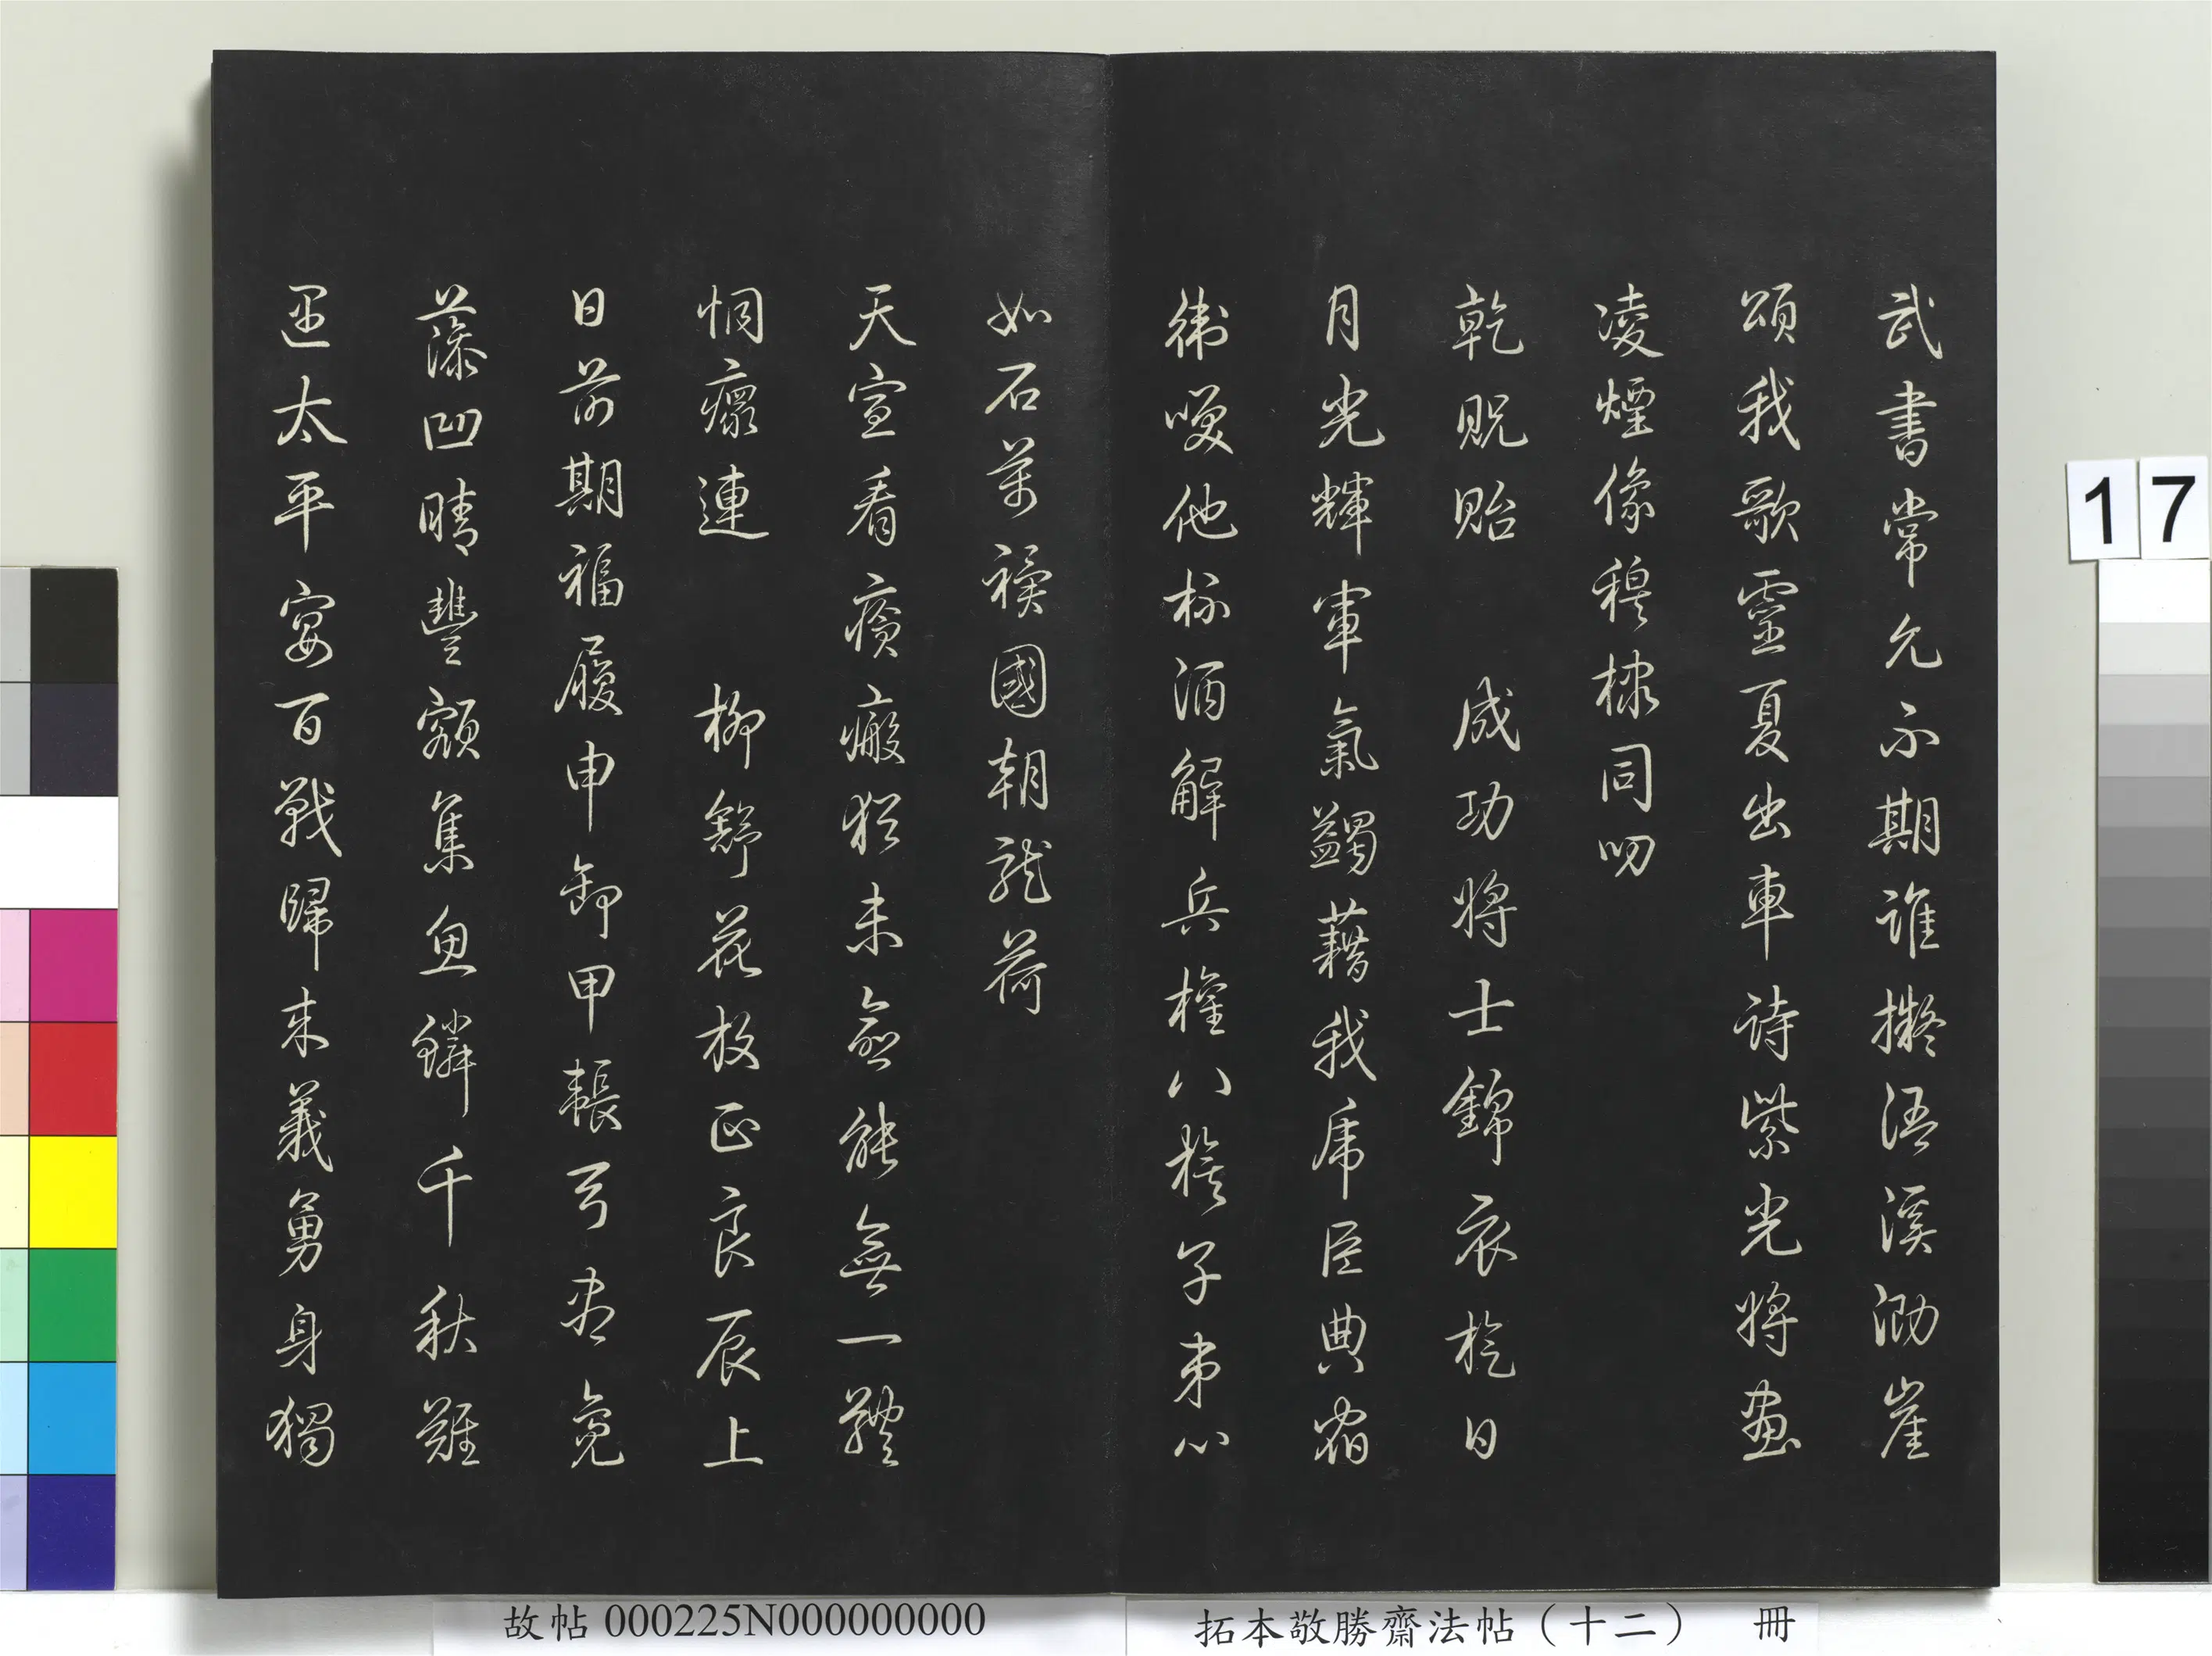 武書常允不期誰擬浯溪泐崖
頌我歌靈夏出車詩紫光將畫
凌煙像穆棣同吻
乾貺貽 成功將士錦衣於日
月光輝軍氣蠲藉我席臣典宿
衛嘆他杯酒解兵權八旗子弟心
如石萬禩國朝龍荷
天宣看瘡瘢猶未愈能無一體
恫瘝連 柳舒花放正良辰上
日前期福履申卸甲韔弓來
藻凹晴豐額集魚鱗千秋難
遇太平宴百戰歸來義勇身獨
17
故帖000225N000000000
拓本敬勝齋法帖(十二) 冊